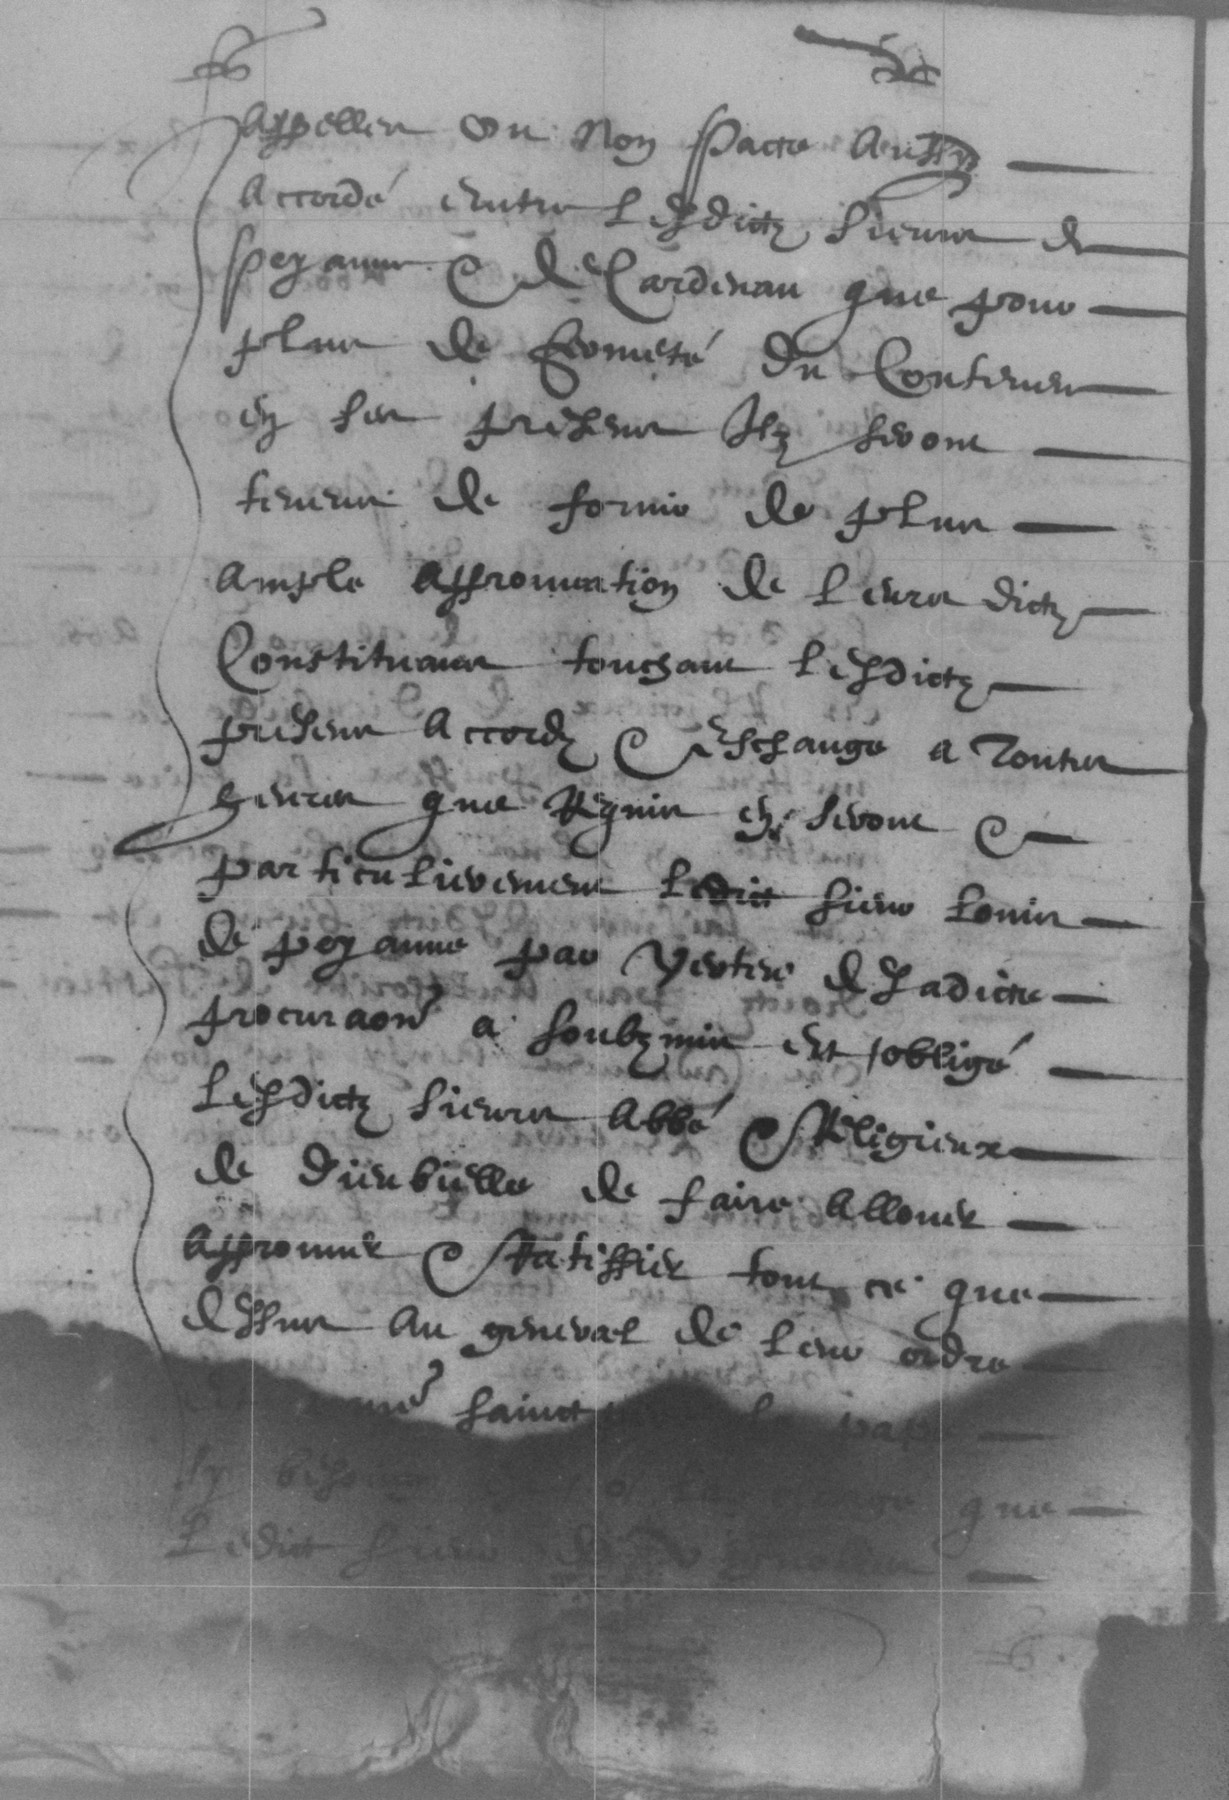 appeller ou non pacte aussy
accordé entre lesdictz sieurs de
peyanne & de Cardenau que pour
plus de fermeté du contenu
en ses presens ilz seront
tenus de fornir de plus
ample approuvation de leurs dictz
Constituans touchant lesdictz
presens accordz & eschange a toutes
heures que requis en seront &
particulierement ledict sieur Louis
de peyanne par vertu de sadicte
procuraon a soubzmis et obligé
lesdictz sieurs abbé & Religieux
de Dieubielle de faire allouer
approuver & Ratiffier tout ce que
dessus au general de leur ordre
sainct pape
sy besoing que
Ledict sieur